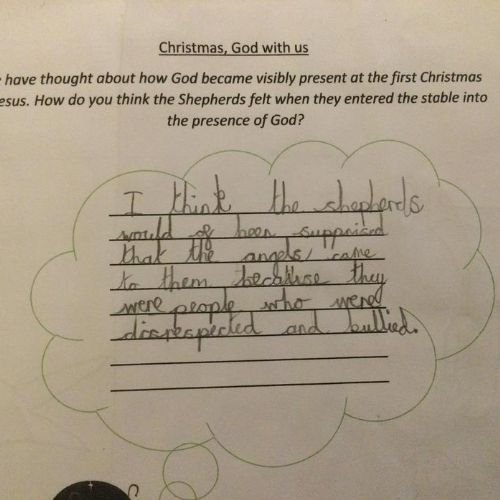 Christmas, God with us
have thought about how God became visibly present at the first Christmas
esus. How do you think the Shepherds felt when they entered the stable into
the presence of God?
I think the shepherds
would of been supprised
that the angels, came
to them because they
were people who were
disrespected and bullied.